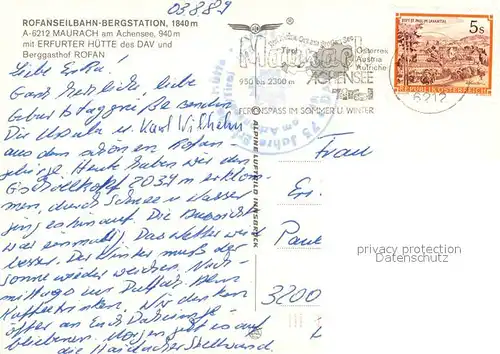 03889
ROFANSEILBAHN-BERGSTATION, 1840 m
A-6212 MAURACH am Achensee, 940 m
mit ERFURTER HÜTTE des DAV und
Berggasthof ROFAN
Tirol
Maurach
ACHENSEE
Österreich
Austria
Autriche
950 bis 2300 m
FERIENSPASS IM SOMMER U. WINTER
5 s
REPUBLIK ÖSTERREICH
6212
75 Jahre
ALPINE LUFTBILD INNSBRUCK
Liebe Erika!
Ganz herzliche, liebe
Geburtstagsgrüße senden
Dir Ursula u. Karl Vilhelm
aus dem schönen Rofan
gebirge. Heute haben wir den
Gschöllkopf 2039 m erklom-
men, durch Schnee u. Wasser
ging es hinauf. Die Aussicht
war einmalig. Das Wetter wird
besser. Der Winter muß der
Sonne wieder weichen. Nach-
mittags am Kaffee
trinken. Wir denken
öfter an Euch
bliebenen. Morgen geht es auf
die Haidacher Stellwand.
Frau
Eri
Paul
3200
privacy protection
Datenschutz